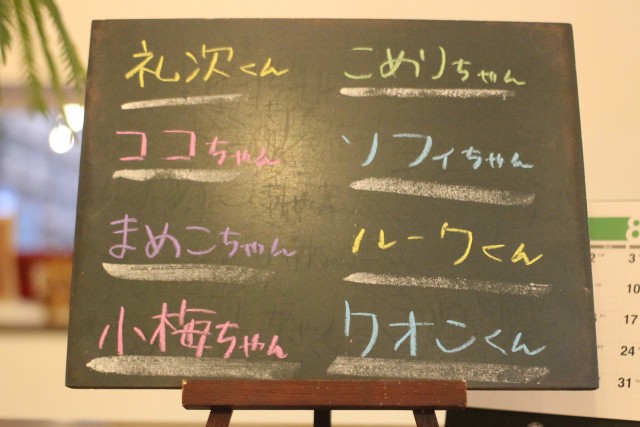 礼次くん
ココちゃん
まめこちゃん
小梅ちゃん
こめりちゃん
ソフィちゃん
ルークくん
クオンくん
8
2
3
10
17
24
31